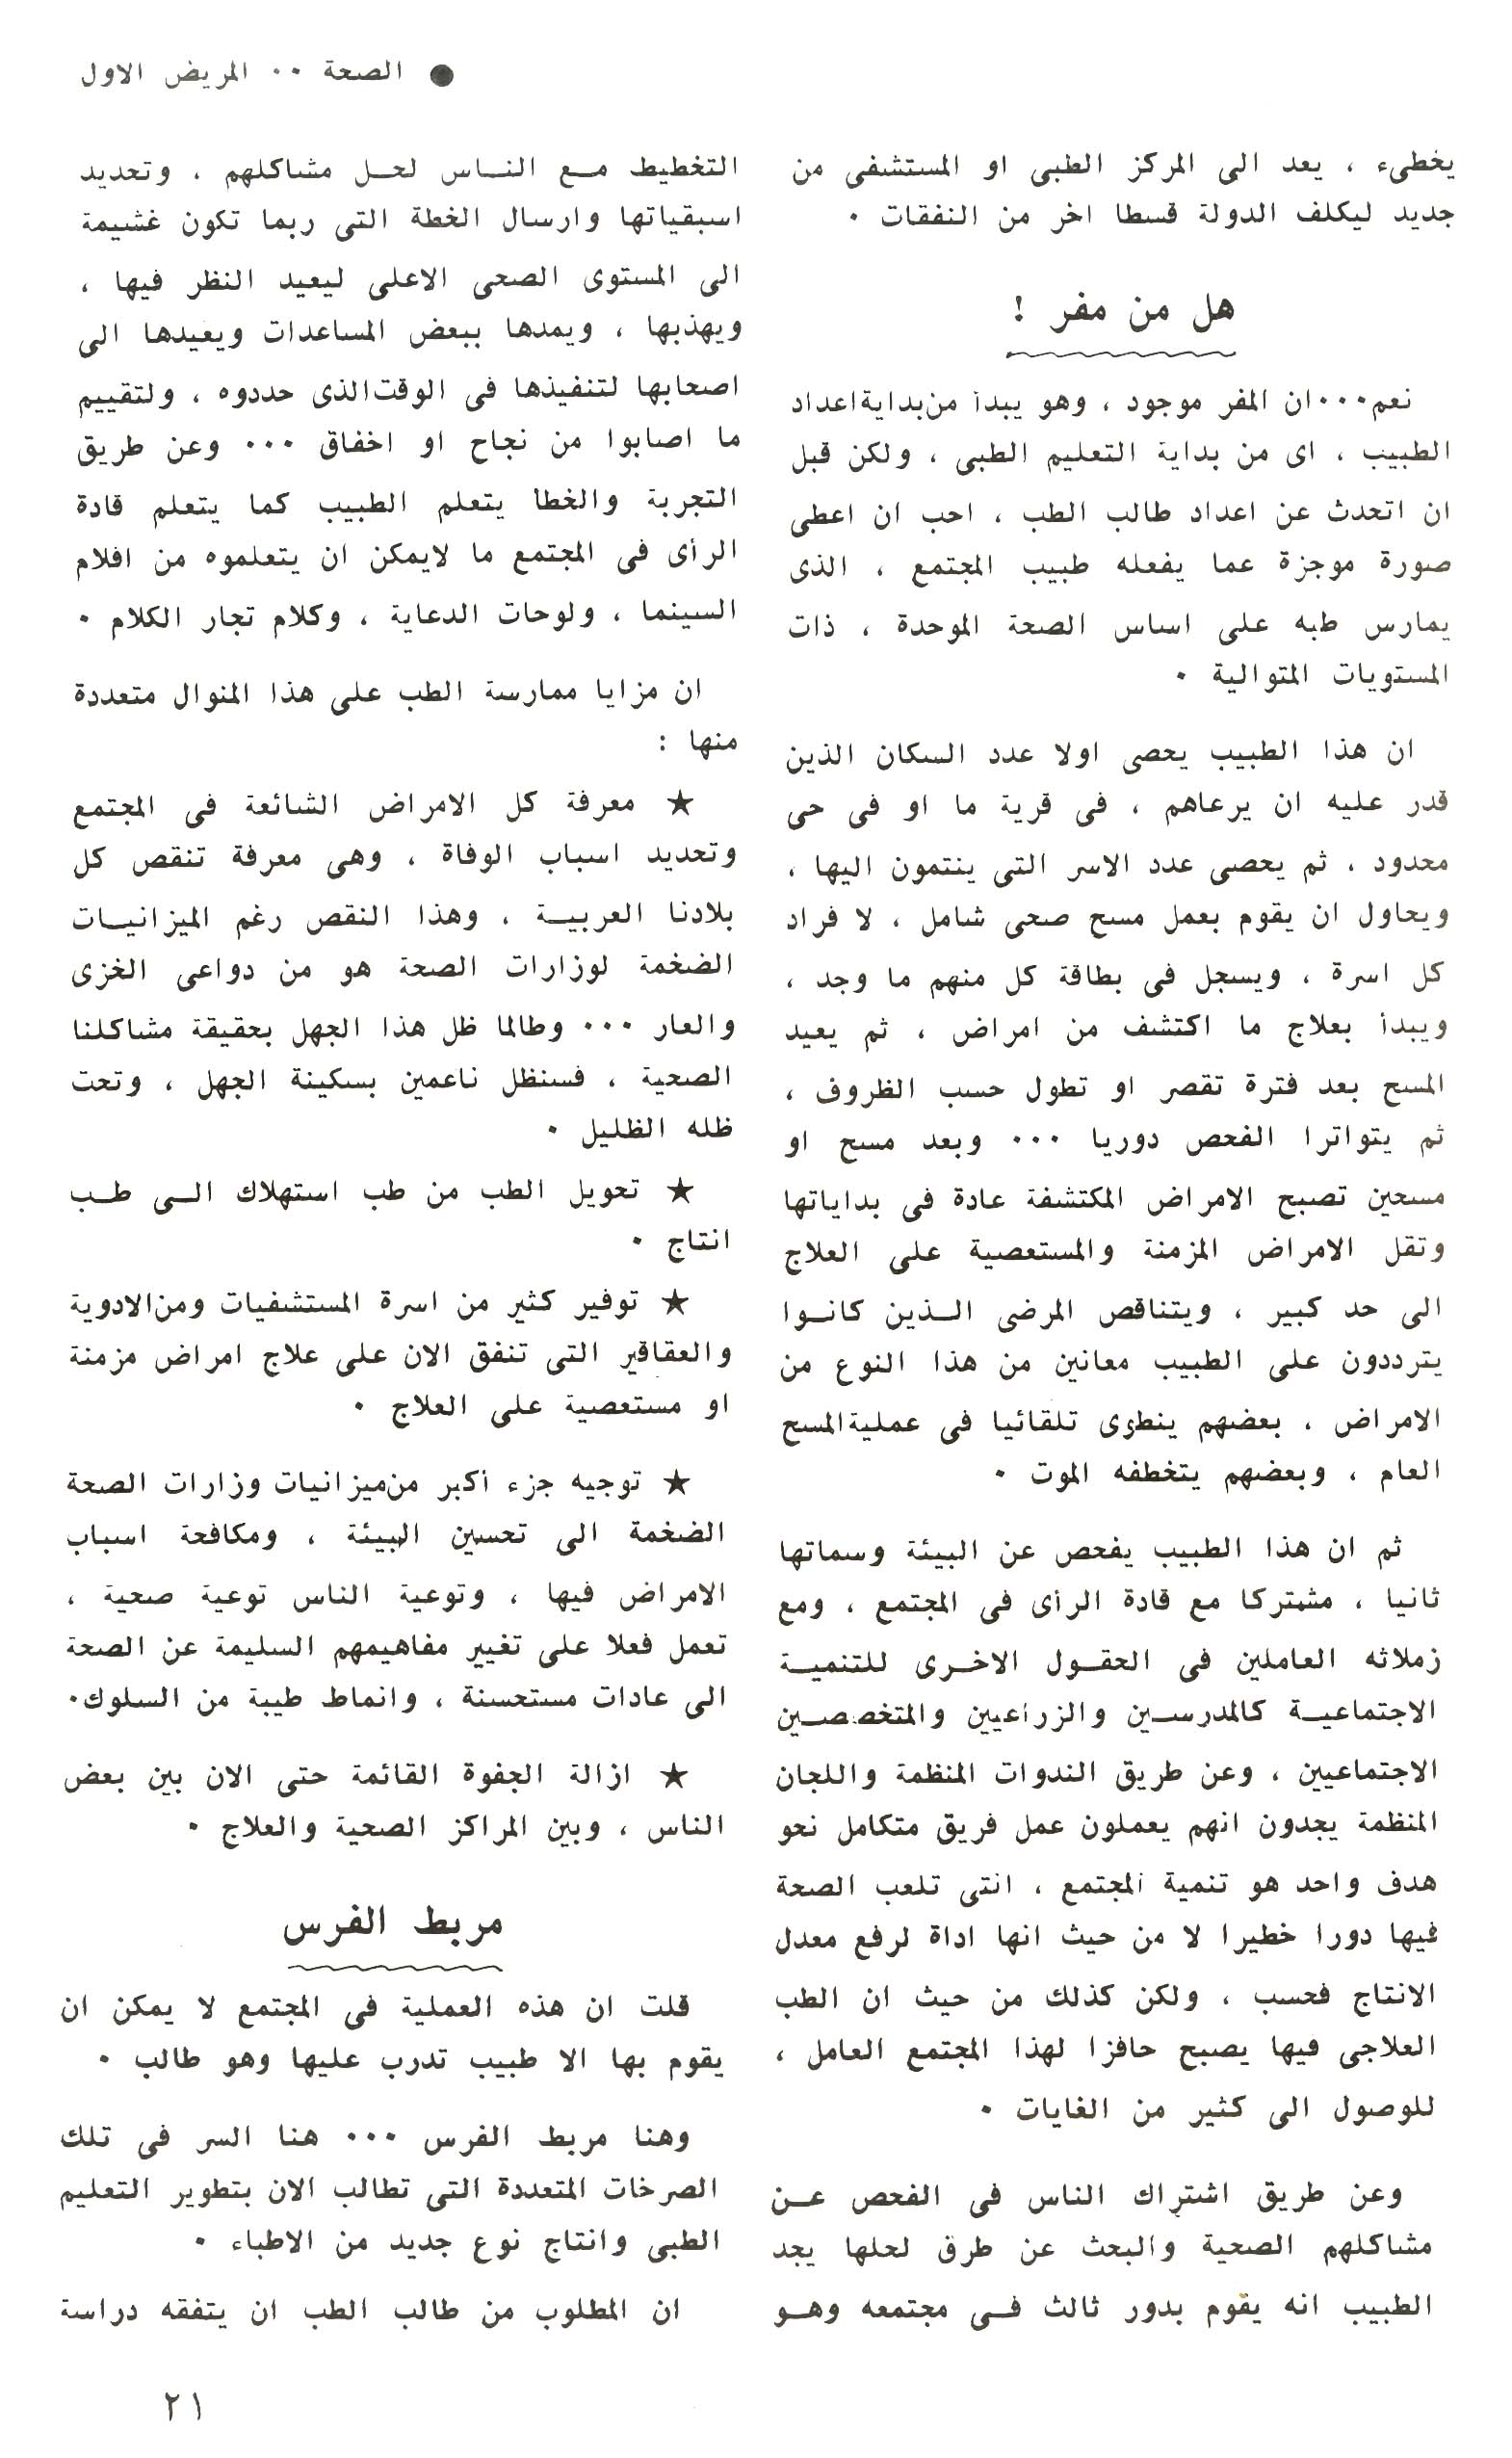 ● الصحة ٠٠ المريض الاول
يخطىء ، يعد الى المركز الطبى او المستشفى من
جديد ليكلف الدولة قسطا اخر من النفقات ٠
هل من مفر !
نعم ٠٠٠ ان المفر موجود ، وهو يبدأ من بداية اعداد
الطبيب ، اى من بداية التعليم الطبى ، ولكن قبل
ان اتحدث عن اعداد طالب الطب ، احب ان اعطى
صورة موجزة عما يفعله طبيب المجتمع ، الذى
يمارس طبه على اساس الصحة الموحدة ، ذات
المستويات المتوالية ٠
ان هذا الطبيب يحصى اولا عدد السكان الذين
قدر عليه ان يرعاهم ، فى قرية ما او فى حى
محدود ، ثم يحصى عدد الاسر التى ينتمون اليها ،
ويحاول ان يقوم بعمل مسح صحى شامل ، لا فراد
كل اسرة ، ويسجل فى بطاقة كل منهم ما وجد ،
ويبدأ بعلاج ما اكتشف من امراض ، ثم يعيد
المسح بعد فترة تقصر او تطول حسب الظروف ،
ثم يتواترا الفحص دوريا ٠٠٠ وبعد مسح او
مسحين تصبح الامراض المكتشفة عادة فى بداياتها
وتقل الامراض المزمنة والمستعصية على العلاج
الى حد كبير ، ويتناقص المرضى الـذين كانـوا
يترددون على الطبيب معانين من هذا النوع من
الامراض ، بعضهم ينطوى تلقائيا فى عملية المسح
العام ، وبعضهم يتخطفه الموت ٠
ثم ان هذا الطبيب يفحص عن البيئة وسماتها
ثانيا ، مشتركا مع قادة الرأى فى المجتمع ، ومع
زملائه العاملين فى الحقـول الاخـرى للتنميـة
الاجتماعيـة كالمدرسـين والزراعيين والمتخصصـين
الاجتماعيين ، وعن طريق الندوات المنظمة واللجان
المنظمة يجدون انهم يعملون عمل فريق متكامل نحو
هدف واحد هو تنمية المجتمع ، التى تلعب الصحة
فيها دورا خطيرا لا من حيث انها اداة لرفع معدل
الانتاج فحسب ، ولكن كذلك من حيث ان الطب
العلاجى فيها يصبح حافزا لهذا المجتمع العامل ،
للوصول الى كثير من الغايات ٠
وعن طريق اشتراك الناس فى الفحص عـن
مشاكلهم الصحية والبحث عن طرق لحلها يجد
الطبيب انه يقوم بدور ثالث فـى مجتمعه وهـو
التخطيط مـع النـاس لحـل مشاكلهم ، وتحديد
اسبقياتها وارسال الخطة التى ربما تكون غشيمة
الى المستوى الصحى الاعلى ليعيد النظر فيها ،
ويهذبها ، ويمدها ببعض المساعدات ويعيدها الى
اصحابها لتنفيذها فى الوقت الذى حددوه ، ولتقييم
ما اصابوا من نجاح او اخفاق ٠٠٠ وعن طريق
التجربة والخطا يتعلم الطبيب كما يتعلم قادة
الرأى فى المجتمع ما لايمكن ان يتعلموه من افلام
السينما ، ولوحات الدعاية ، وكلام تجار الكلام ٠
ان مزايا ممارسة الطب على هذا المنوال متعددة
منها :
★ معرفة كل الامراض الشائعة فى المجتمع
وتحديد اسباب الوفاة ، وهى معرفة تنقص كل
بلادنا العربيـة ، وهذا النقص رغم الميزانيـات
الضخمة لوزارات الصحة هو من دواعى الخزى
والعار ٠٠٠ وطالما ظل هذا الجهل بحقيقة مشاكلنا
الصحية ، فسنظل ناعمين بسكينة الجهل ، وتحت
ظله الظليل ٠
★ تحويل الطب من طب استهلاك الـى طـب
انتاج ٠
★ توفير كثير من اسرة المستشفيات ومن الادوية
والعقاقير التى تنفق الان على علاج امراض مزمنة
او مستعصية على العلاج ٠
★ توجيه جزء أكبر من ميزانيات وزارات الصحة
الضخمة الى تحسين البيئة ، ومكافحة اسباب
الامراض فيها ، وتوعية الناس توعية صحية ،
تعمل فعلا على تغيير مفاهيمهم السليمة عن الصحة
الى عادات مستحسنة ، وانماط طيبة من السلوك٠
★ ازالة الجفوة القائمة حتى الان بين بعض
الناس ، وبين المراكز الصحية والعلاج ٠
مربط الفرس
قلت ان هذه العملية فى المجتمع لا يمكن ان
يقوم بها الا طبيب تدرب عليها وهو طالب ٠
وهنا مربط الفرس ٠٠٠ هنا السر فى تلك
الصرخات المتعددة التى تطالب الان بتطوير التعليم
الطبى وانتاج نوع جديد من الاطباء ٠
ان المطلوب من طالب الطب ان يتفقه دراسة
٢١